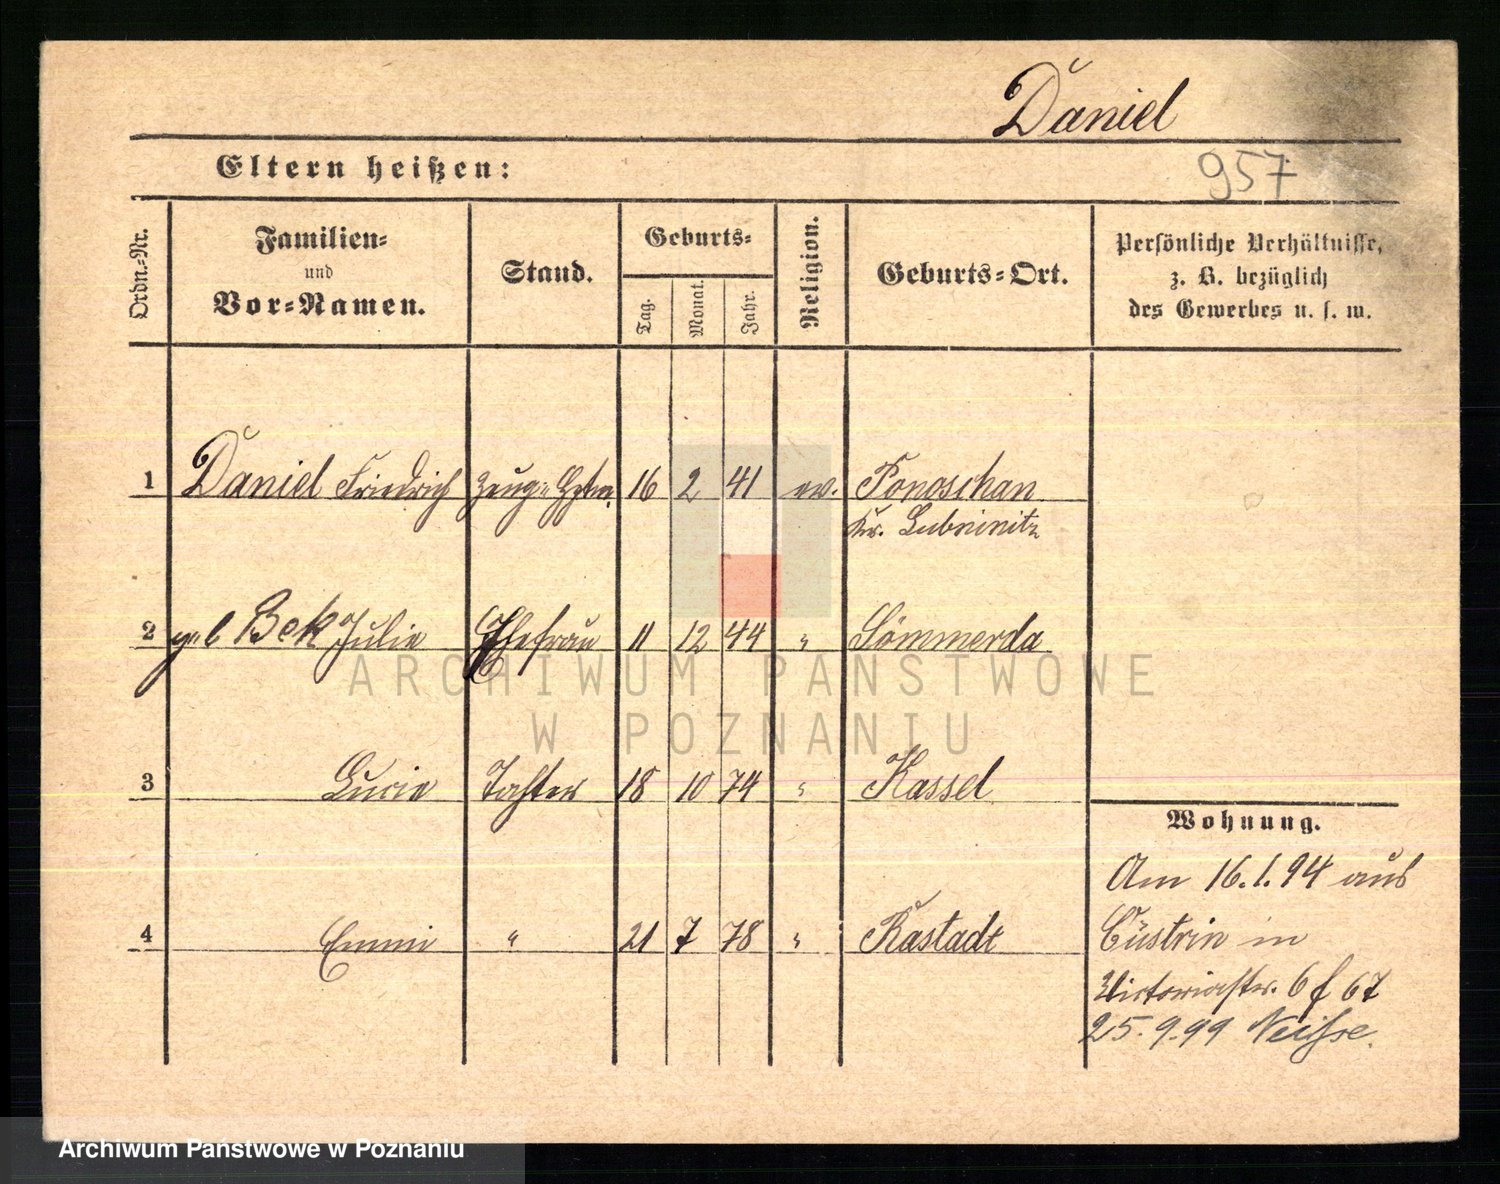 Daniel
957
Eltern heißen:
Ordn.-Nr.
Familien- und Vor-Namen.
Stand.
Geburts-
Tag.
Monat.
Jahr.
Religion.
Geburts-Ort.
Persönliche Verhältnisse,
z. B. bezüglich
des Gewerbes u. s. w.
1 Daniel Friedrich Zeug-Hptm. 16 2 41 ev. Ponoschau
Kr. Lubinitz
2 geb Bek Julie Ehefrau 11 12 44 " Sömmerda
ARCHIWUM PAŃSTWOWE
W POZNANIU
3 Lucie Tochter 18 10 74 " Kassel
Wohnung.
Am 16.1.94 aus
4 Emmi " 21 7 78 " Rastadt
Cüstrin in
Victoriastr. 6 f 67
25.9.99 Neisse.
Archiwum Państwowe w Poznaniu